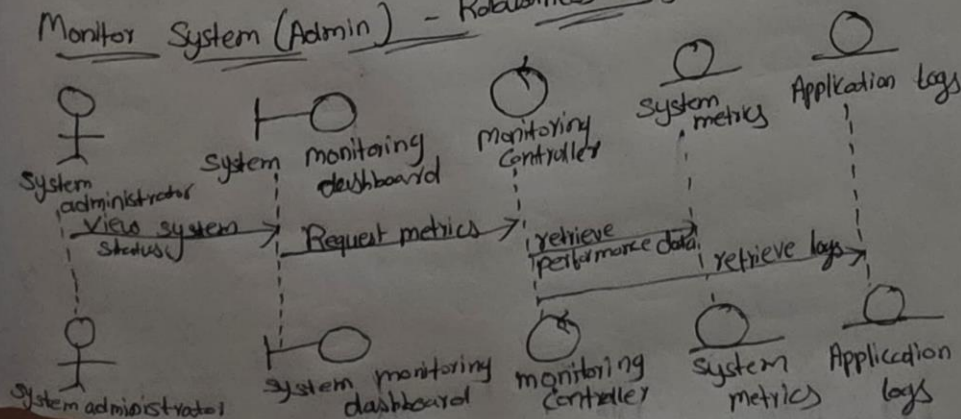 Monitor System (Admin) -
System
administrator
System monitoring
dashboard
monitoring
Controller
System
metrics
Application Logs
View system
status
Request metrics
retrieve
performance data
retrieve logs
System administrator
System monitoring
dashboard
monitoring
Controller
System
metrics
Application
logs